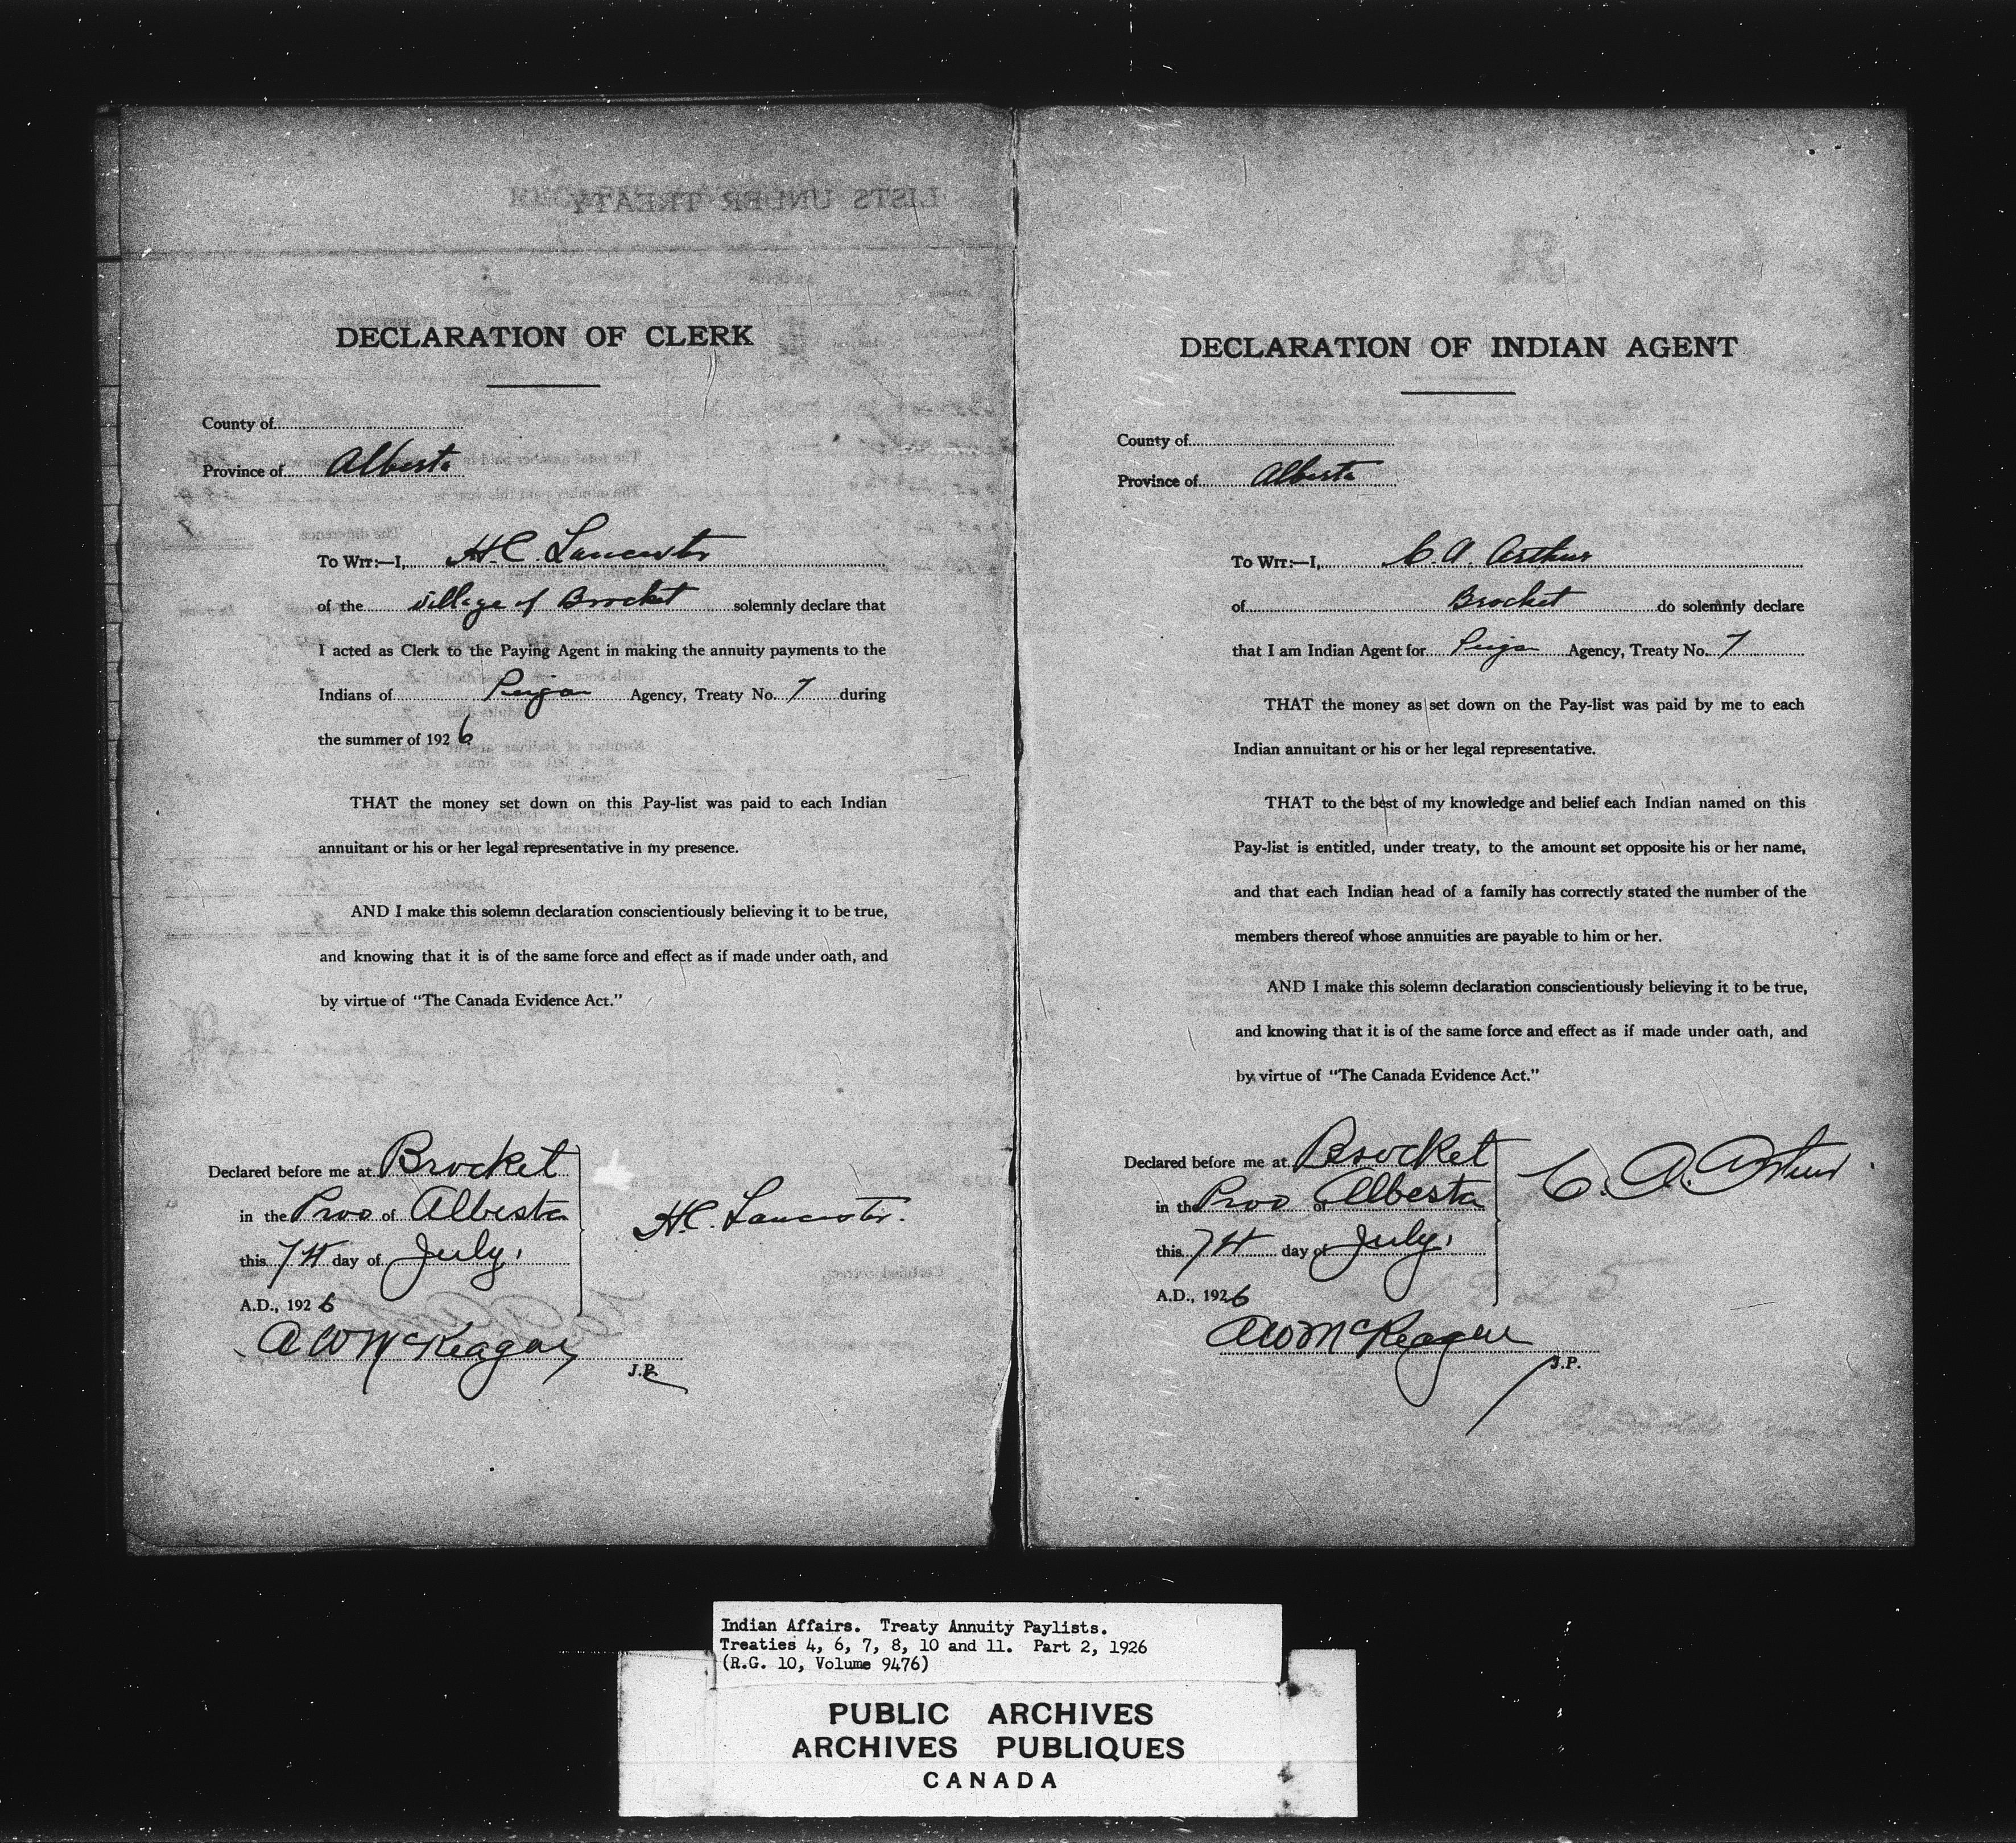 DECLARATION OF CLERK
County of
Province of Alberta
To Wit:—I, H.C. Lancaster
of the village of Brocket solemnly declare that
I acted as Clerk to the Paying Agent in making the annuity payments to the
Indians of Peigan Agency, Treaty No. 7 during
the summer of 1926
THAT the money set down on this Pay-list was paid to each Indian
annuitant or his or her legal representative in my presence.
AND I make this solemn declaration conscientiously believing it to be true,
and knowing that it is of the same force and effect as if made under oath, and
by virtue of "The Canada Evidence Act."
Declared before me at Brocket
in the Prov of Alberta
this 7th day of July,
A.D., 1926
H.C. Lancaster.
A W McKeagan
J.P.
DECLARATION OF INDIAN AGENT
County of
Province of Alberta
To Wit:—I, C. A. Arthur
of Brocket do solemnly declare
that I am Indian Agent for Peigan Agency, Treaty No. 7
THAT the money as set down on the Pay-list was paid by me to each
Indian annuitant or his or her legal representative.
THAT to the best of my knowledge and belief each Indian named on this
Pay-list is entitled, under treaty, to the amount set opposite his or her name,
and that each Indian head of a family has correctly stated the number of the
members thereof whose annuities are payable to him or her.
AND I make this solemn declaration conscientiously believing it to be true,
and knowing that it is of the same force and effect as if made under oath, and
by virtue of "The Canada Evidence Act."
Declared before me at Brocket
in the Prov of Alberta
this 7th day of July,
A.D., 1926
C. A. Arthur
A W McKeagan
J.P.
Indian Affairs. Treaty Annuity Paylists.
Treaties 4, 6, 7, 8, 10 and 11. Part 2, 1926
(R.G. 10, Volume 9476)
PUBLIC ARCHIVES
ARCHIVES PUBLIQUES
CANADA